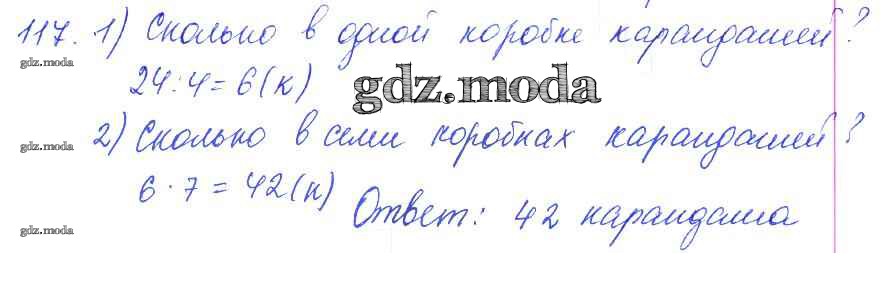 117. 1) Сколько в одной коробке карандашей?
gdz.moda
24:4=6(к)
gdz.moda
2) Сколько в семи коробках карандашей?
gdz.moda
6·7=42(к)
Ответ: 42 карандаша
gdz.moda